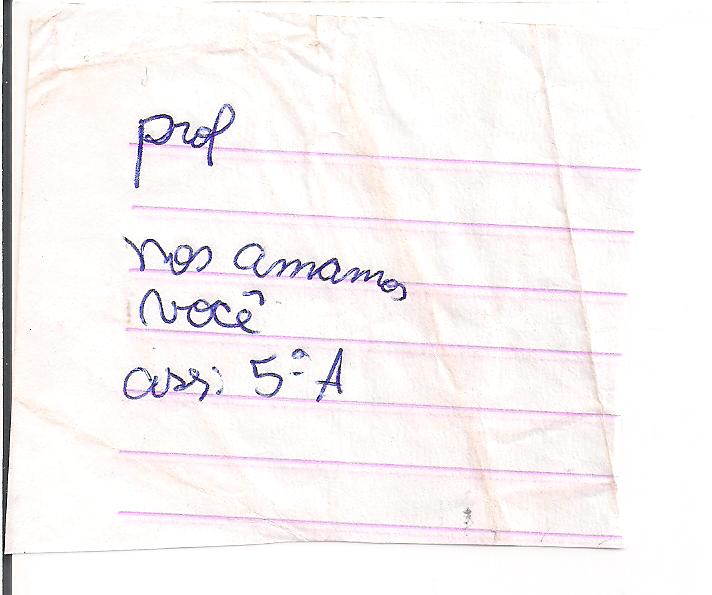 prof
nos amamos
você
ass: 5ª A